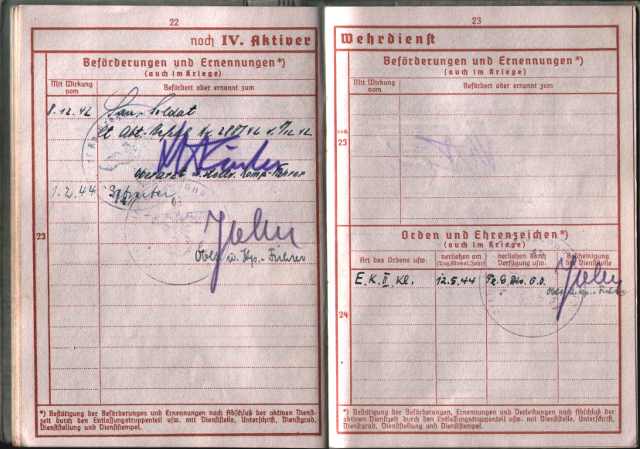 22
noch IV. Aktiver
Beförderungen und Ernennungen*)
(auch im Kriege)
Mit Wirkung
vom
Befördert oder ernannt zum
8.12.42 San. Soldat
lt Abt. Befehl Nr
1.2.44 Gefreiter
23
Oblt. u. Kp.-Führer
*) Bestätigung der Beförderungen und Ernennungen nach Abschluß der aktiven Dienst-
zeit durch den Entlassungstruppenteil usw. mit Dienststelle, Unterschrift, Dienstgrad,
Dienststellung und Dienststempel.
23
Wehrdienst
Beförderungen und Ernennungen*)
(auch im Kriege)
Mit Wirkung
vom
Befördert oder ernannt zum
noch
23
Orden und Ehrenzeichen*)
(auch im Kriege)
Art des Ordens usw.
verliehen am
(Tag, Monat, Jahr)
verliehen durch
Verfügung usw.
Bescheinigung
der Dienststelle
E.K. II Kl. 12.5.44 Pz. G. Div. G.D.
24
*) Bestätigung der Beförderungen, Ernennungen und Verleihungen nach Abschluß der
aktiven Dienstzeit durch den Entlassungstruppenteil usw. mit Dienststelle, Unterschrift,
Dienstgrad, Dienststellung und Dienststempel.